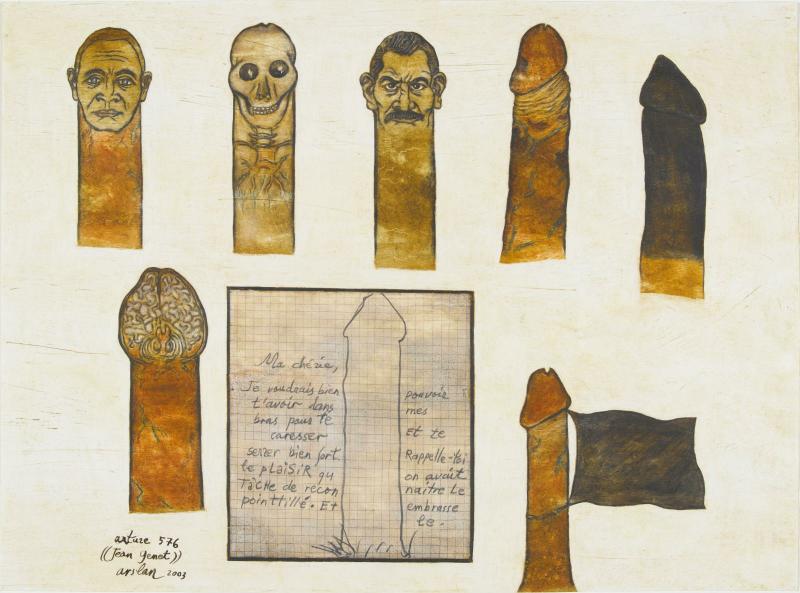 Ma chérie,
Je voudrais bien pouvoir
t'avoir dans mes
bras pour te
caresser Et te
serrer bien fort.
le pLaiSiR qu Rappelle-toi
on avait
TâCHe de recon naitre Le
pointtillé. Et embrasse
le.
arture 576
((Jean Genet))
arslan 2003